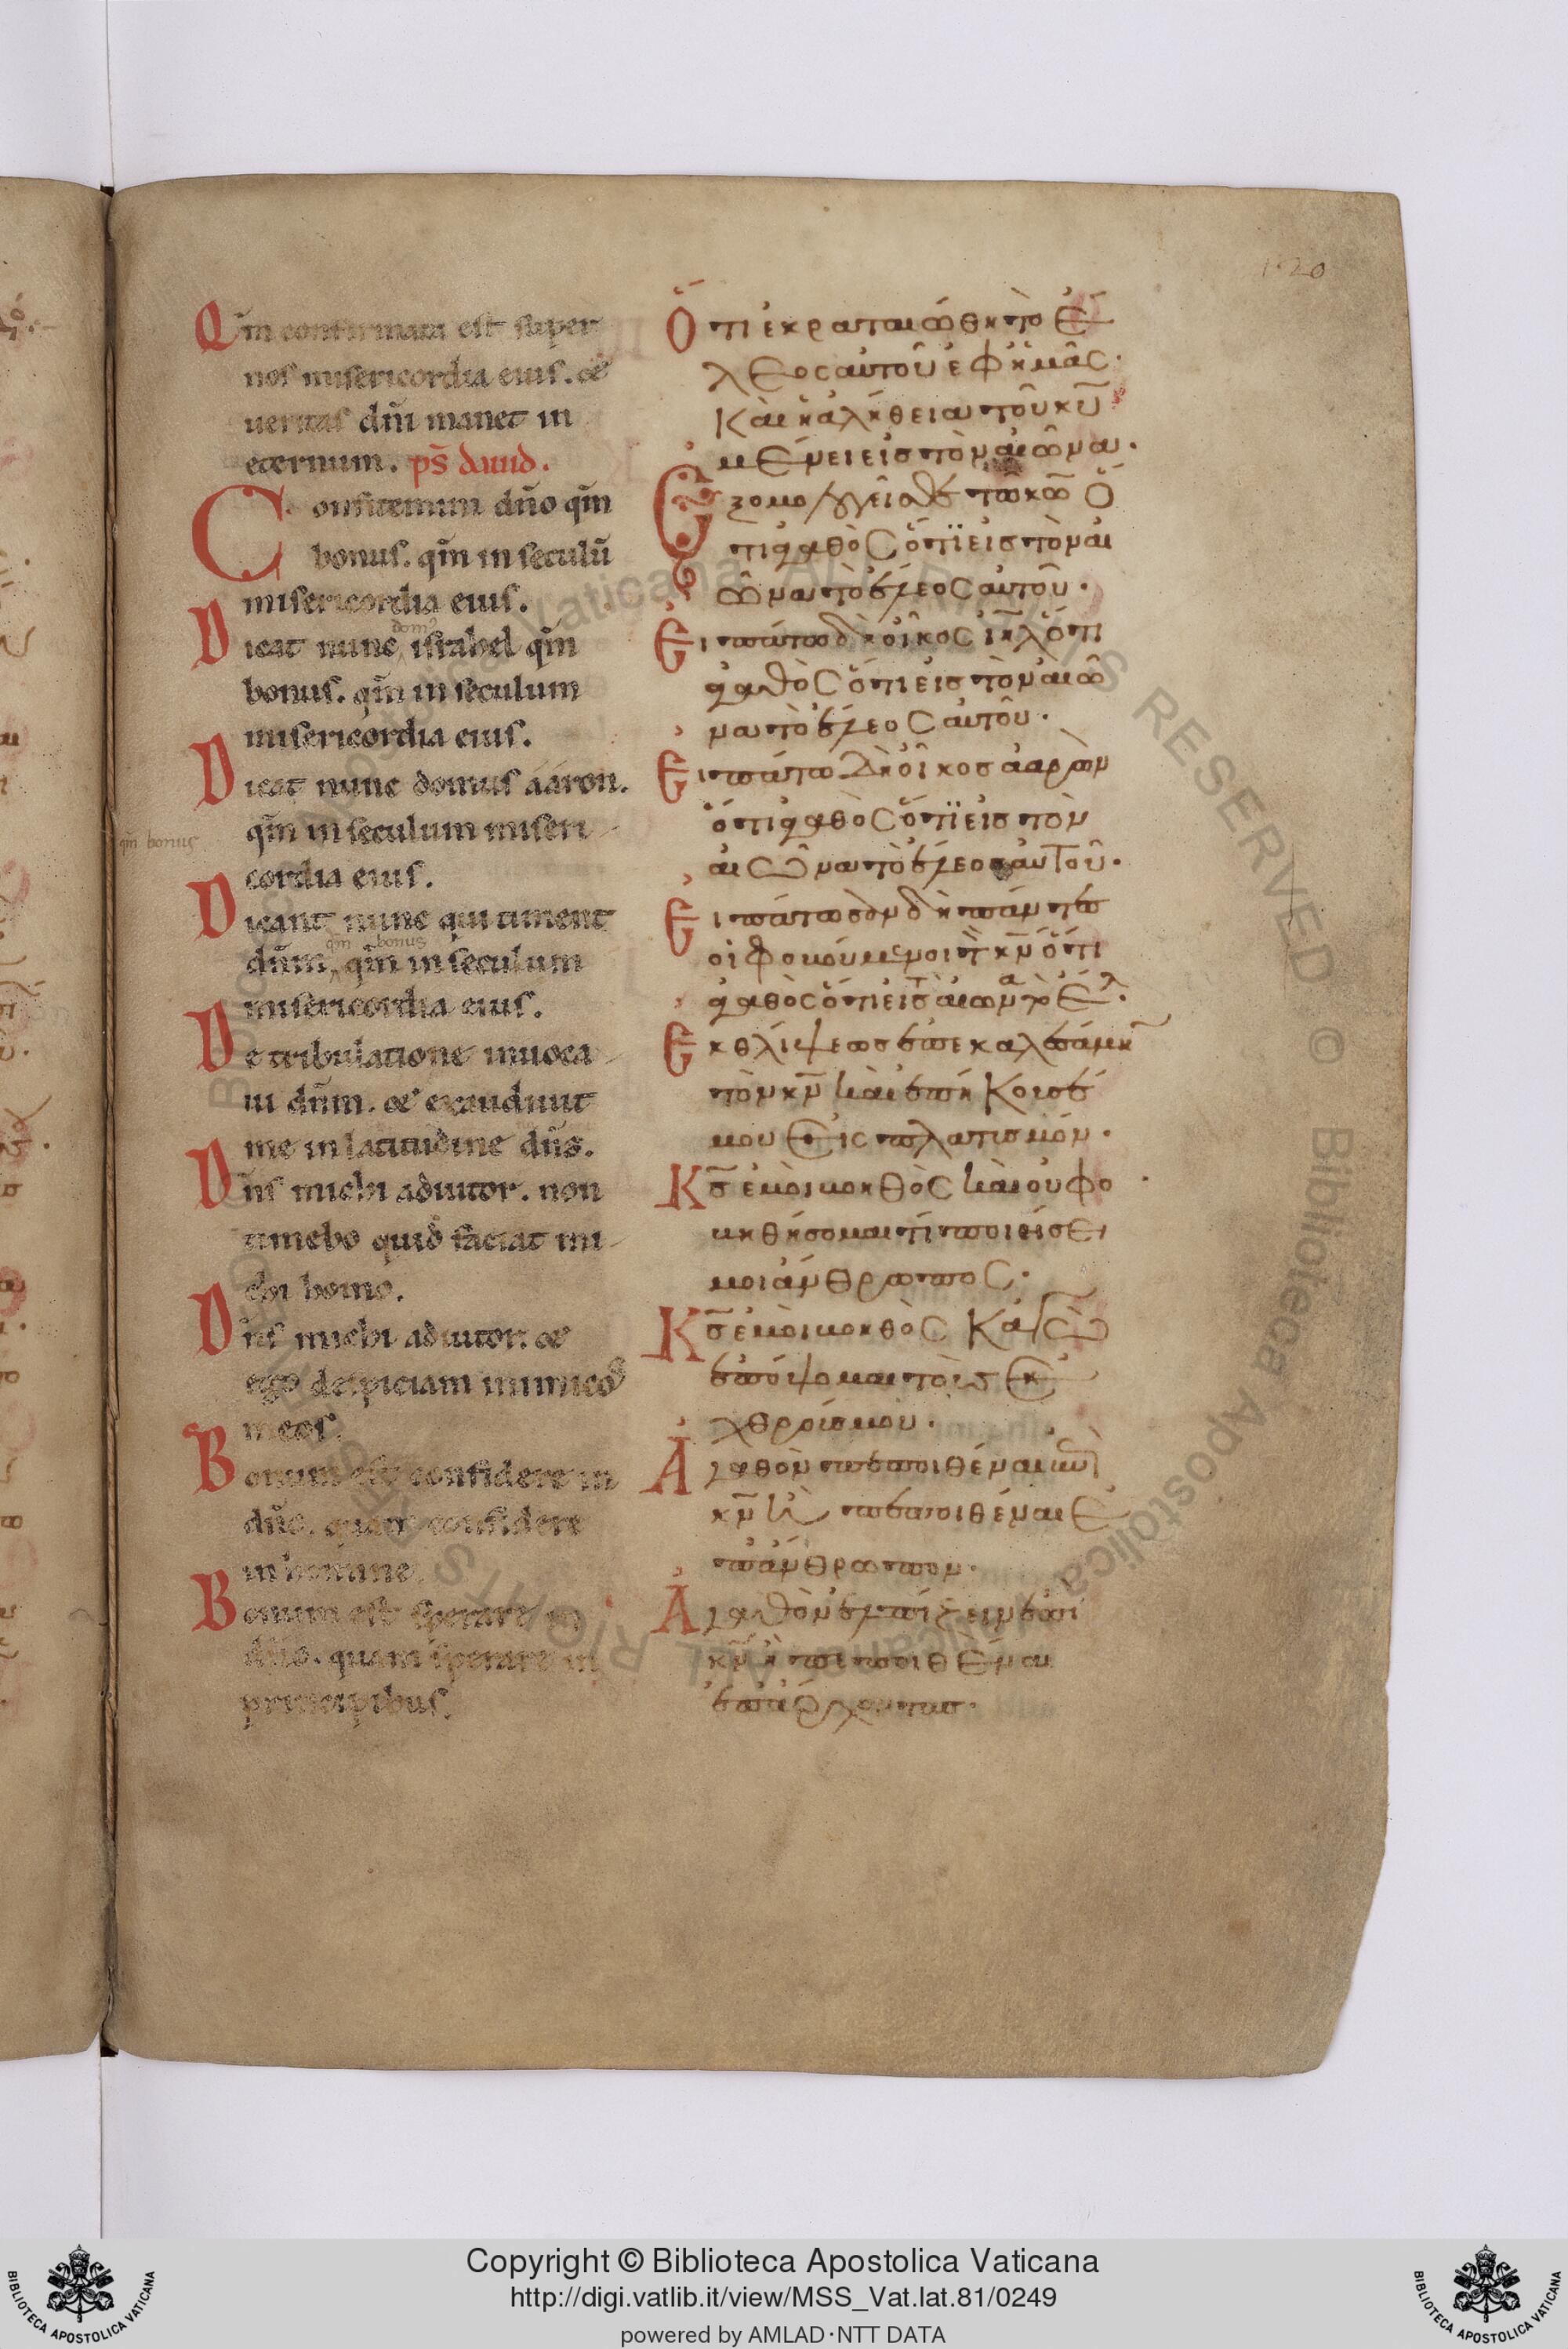 120
Qm̄ confirmata est super
nos misericordia eius. &
ueritas dn̄i manet in
eternum. ps̄ dauid.
Confitemini dn̄o qm̄
bonus. qm̄ in seculū
misericordia eius.
Dicat nunc israhel qm̄
bonus. qm̄ in seculum
misericordia eius.
Dicat nunc domus ááron.
qm̄ in seculum miseri-
cordia eius.
qm̄ bonus
Dicant nunc qui timent
qm̄ bonus
dn̄m, qm̄ in seculum
misericordia eius.
De tribulatione inuoca-
ui dn̄m. & exaudiuit
me in latitudine dn̄s.
Dn̄s michi adiutor. non
timebo quid faciat mi-
chi homo.
Dn̄s michi adiutor. &
ego despiciam inimicos
meos.
Bonum est confidere in
dn̄o. quam confidere
in homine.
Bonum est sperare in
dn̄o. quam sperare in
principibus.
Ὅτι ἐκραταιώθη τὸ ἔ
λεος αὐτοῦ ἐφ ἡμᾶς.
Καὶ ἡ ἀλήθεια τοῦ κῡ
μένει εἰς τὸν αἰῶνα.
Ἐξομολογεῖσθε τῶ κω̄ ὅ
τι ἀγαθὸς ὅτι εἰς τὸν αἰ
ῶνα τὸ ἔλεος αὐτοῦ.
Εἰπάτω δὴ οἶκος ιη̄λ ὅτι
ἀγαθὸς ὅτι εἰς τὸν αἰῶ
να τὸ ἔλεος αὐτοῦ.
Εἰπάτω δὴ οἶκος ἀαρὼν
ὅτι ἀγαθὸς ὅτι εἰς τὸν
αἰῶνα τὸ ἔλεος αὐτοῦ.
οἱ φοβούμενοι τ κν̄ ὅτι
Ἐκ θλίψεως ἐπεκαλεσάμην
τὸν κν̄ καὶ ἐπήκουσέ
μου εἰς πλατισμόν.
Κς̄ ἐμοὶ βοηθὸς καὶ οὐ φο
βηθήσομαι τί ποιείσει
μοι ἄνθρωπος.
Κς̄ ἐμοὶ βοηθὸς κἀγὼ
ἐπόψομαι τοὺς ἐ
χθρούς μου.
Ἀγαθὸν πεποιθέναι ἐπὶ
κν̄ ἢ πεποιθέναι ἐ
π ἄνθρωπον.
Ἀγαθὸν ἐλπίζειν ἐπὶ
κν̄ ἢ πεποιθέναι
ἐπ ἄρχοντας.
Copyright © Biblioteca Apostolica Vaticana
http://digi.vatlib.it/view/MSS_Vat.lat.81/0249
powered by AMLAD·NTT DATA
BIBLIOTECA APOSTOLICA VATICANA
BIBLIOTECA APOSTOLICA VATICANA